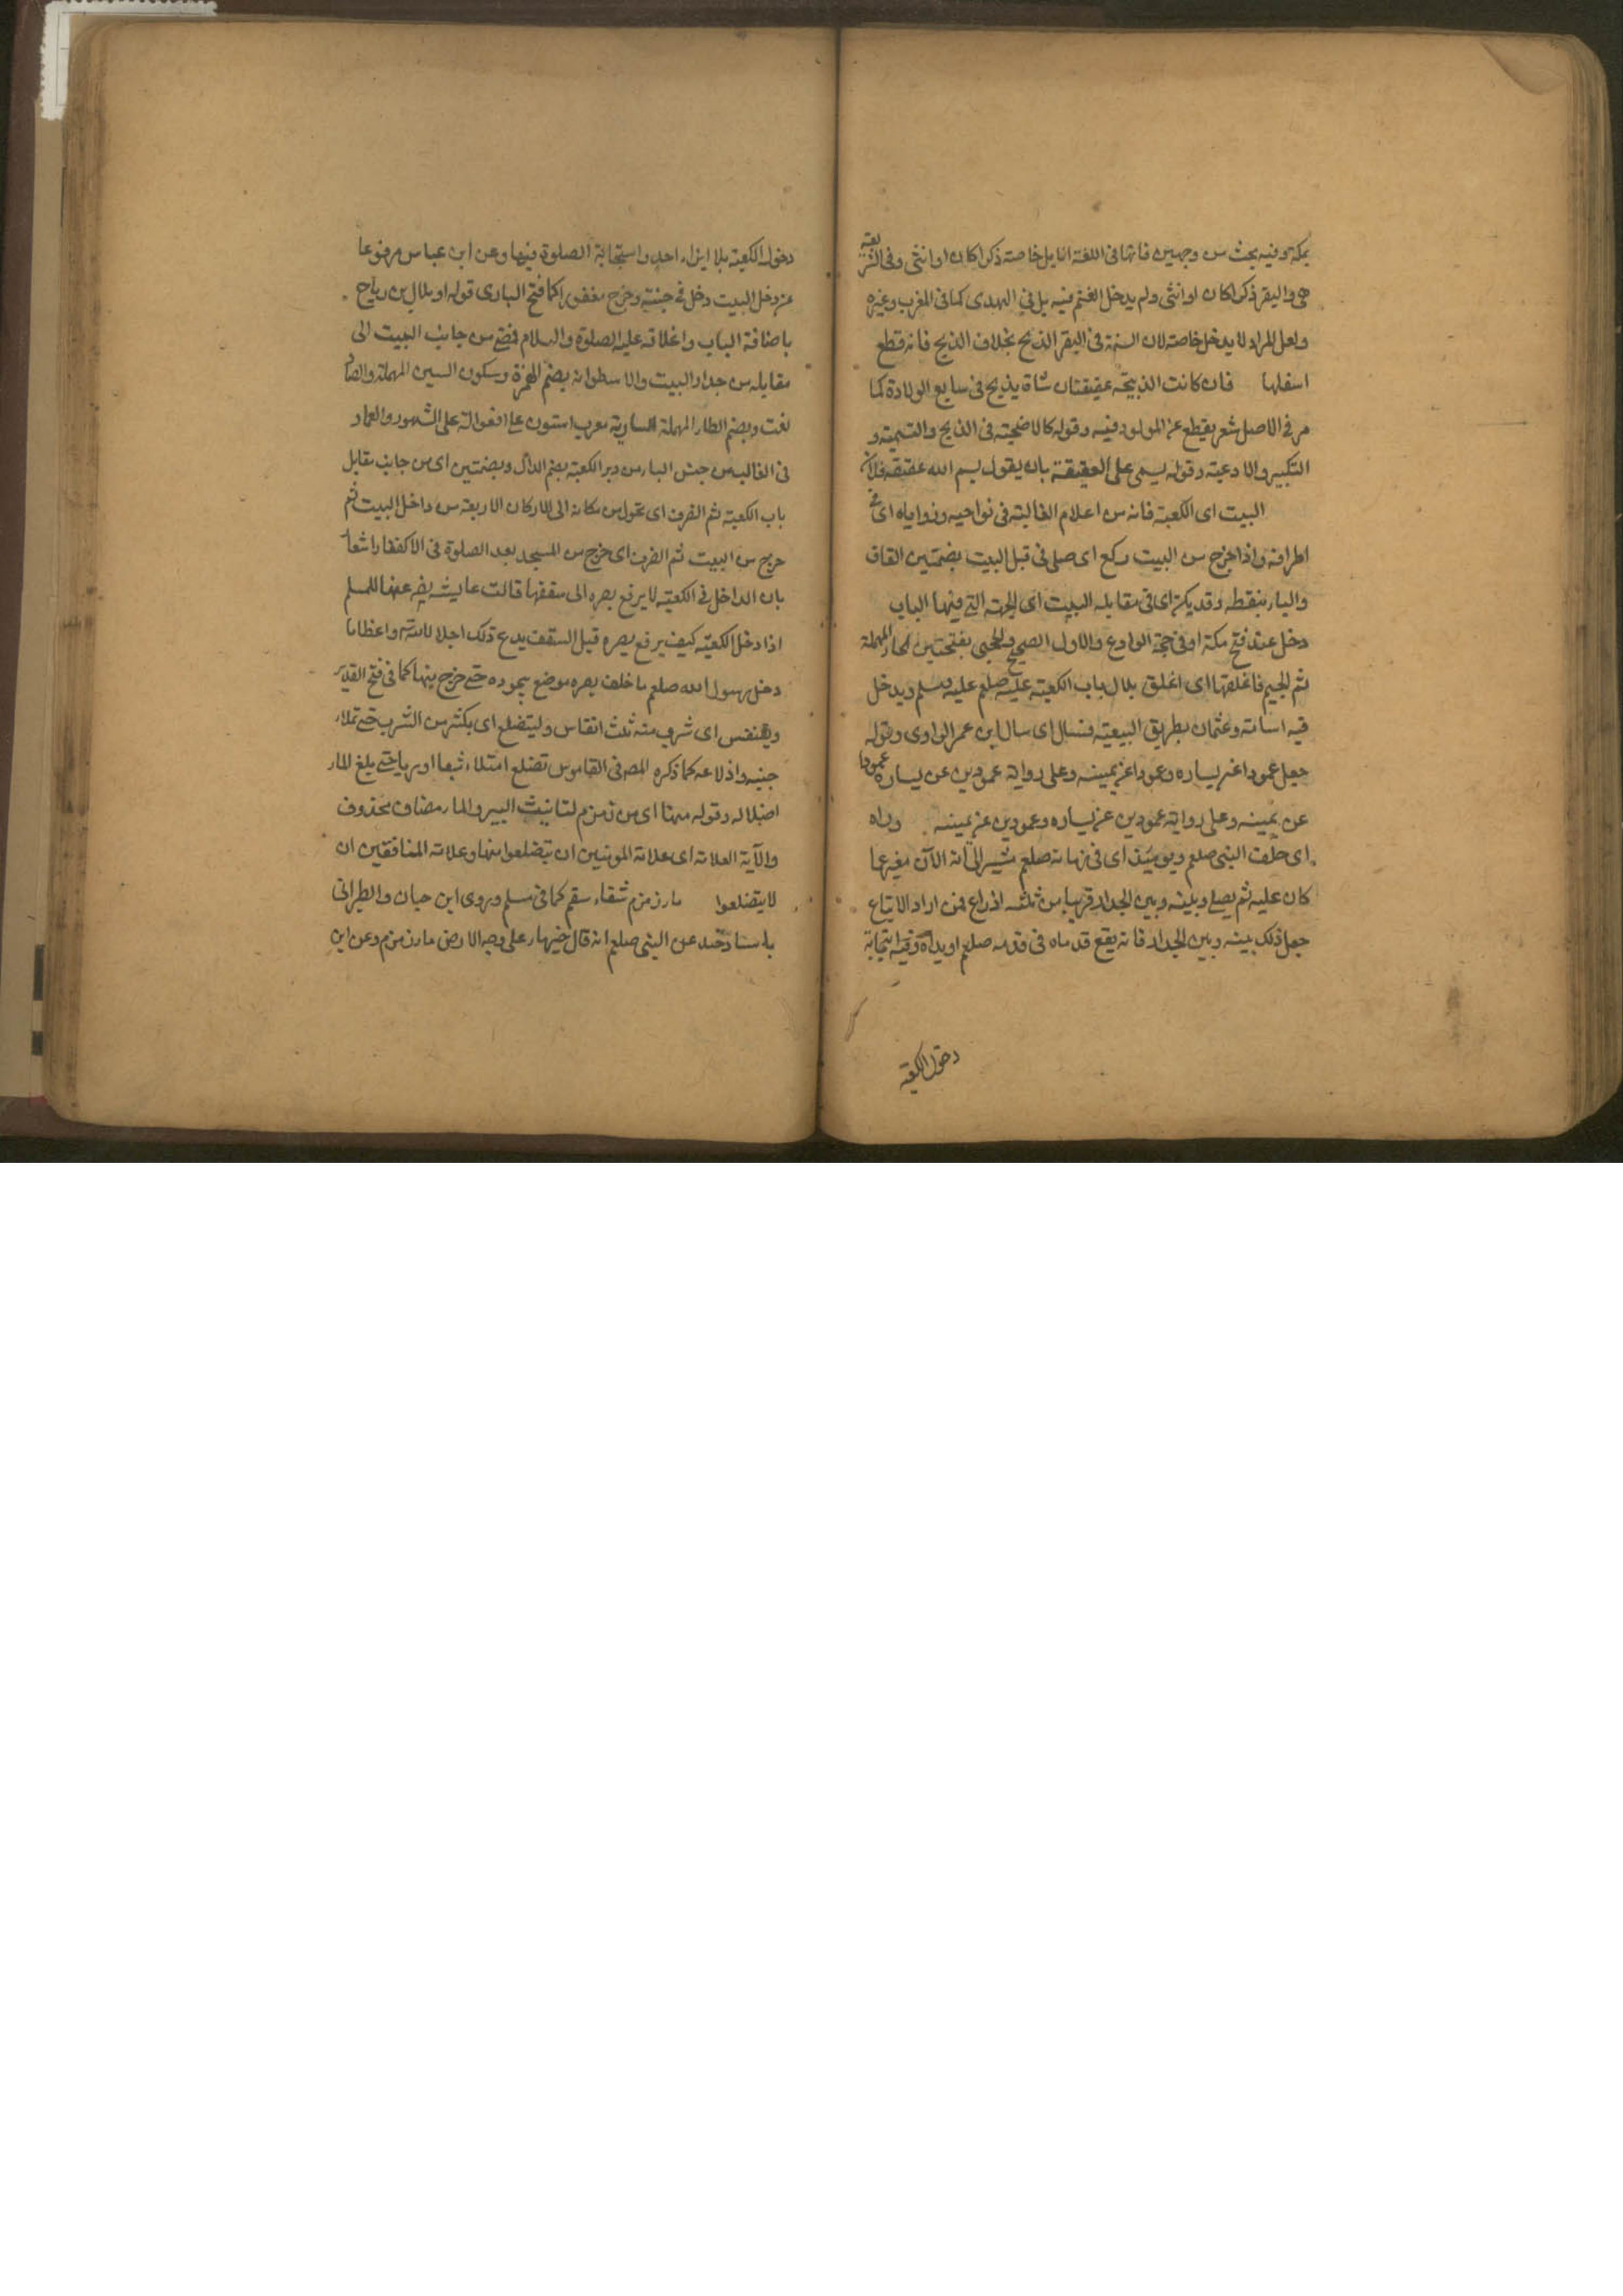 بمكة وفيه بحث من وجهين فانها فى اللغة الابل خاصة ذكرا كان او انثى وفى الشريعة
هى والبقر ذكرا كان او انثى ولم يدخل الغنم فيه بل فى الهدى كما فى المغرب وغيره
ولعل المراد لا يدخل خاصة لان السنة فى البقر الذبح بخلاف الذبح فانه قطع
اسفلها فان كانت الذبيحة عقيقتان شاة يذبح فى سابع الولادة كما
مر فى الاصل شعر يقطع عن المولود فيه وقوله كالاضحية فى الذبح والتسمية و
التكبير والادعية وقوله يسمى على العقيقة بان يقول بسم الله عقيقة فلان
البيت اى الكعبة فانه من اعلام الغالبة فى نواحيه وزواياه اى فى
اطرافه واذا خرج من البيت ركع اى صلى فى قبل البيت بضمتين القاف
والباء بنقطه وقد يكن اى فى مقابله البيت اى الجهة التى فيها الباب
دخل عند فتح مكة او فى حجة الوادع والاول الصحيح والحجبى بفتحتين الحاء المهملة
ثم الجيم فاغلقها اى اغلق بلال باب الكعبة عليه صلعم عليه وسلم ويدخل
فيه اسامة وعثمان بطريق التبعية فسال اى سال ابن عمر الراوى وقوله
جعل عمودا عن يساره وعمودا عن يمينه وعلى رواية عمودين عن يساره عمودا
عن يمينه وعلى رواية عمودين عن يساره وعمودين عن يمينه وراه
اى خلف النبى صلعم ويومئذ اى فى زمانه صلعم مشير الى انه الآن مغير عما
كان عليه ثم يصلى وبينه وبين الجدار قريبا من ثلثه اذراع فمن اراد الاتباع
جعل ذلك بينه وبين الجدار فانه يقع قدماه فى قدمه صلعم او يداه وفيه استحبابة
دخول الكعبة
دخول الكعبة بلا ايذاء احد واستحبابة الصلوة فيها وعن ابن عباس مرفوعا
من دخل البيت دخل فى جنته وخرج مغفورا كما فتح البارى قوله او بلال بن رباح
باضافة الباب واغلاقه عليه الصلوة والسلام فمضى من جانب البيت الى
مقابله من جدار البيت والاسطوانه بضم الهمزة وسكون السين المهملة والصاد
لغت وبضم الطاء المهملة السارية معرب استون على افعوالة على المشهور والعماد
فى الغالب من جنس البناء من دبر الكعبة بضم الدال وبضمتين اى من جانب مقابل
باب الكعبة ثم انصرف اى تحول من مكانه الى الاركان الاربعة من داخل البيت ثم
خرج من البيت ثم انصرف اى خرج من المسجد بعد الصلوة فى الاكتفاء اشعار
بان الداخل فى الكعبة لا يرفع بصره الى سقفها قالت عايشه رضى عنها للمسلم
اذا دخل الكعبة كيف يرفع بصره قبل السقف يدع ذلك اجلالا لله واعظاما
دخل رسول الله صلعم ما خلف بصره موضع سجوده حتى خرج منها كما فى فتح القدير
ويتنفس اى شرب منه ثلث انفاس وليتضلع اى يكثر من الشرب حتى تملاء
جنبه واضلاعه كما ذكره المص فى القاموس تضلع امتلاء شبعا او ريا حتى بلغ الماء
اضلاله وقوله منها اى من زمزم لتانيث البير والماء مضاف محذوف
والآية العلامة اى علامة المومنين ان يتضلعوا منها وعلامة المنافقين ان
لا يتضلعوا ماء زمزم شفاء سقم كما فى مسلم وروى ابن حبان والطبرانى
باسناد جيد عن النبى صلعم انه قال خير ماء على وجه الارض ماء زمزم وعن ابن